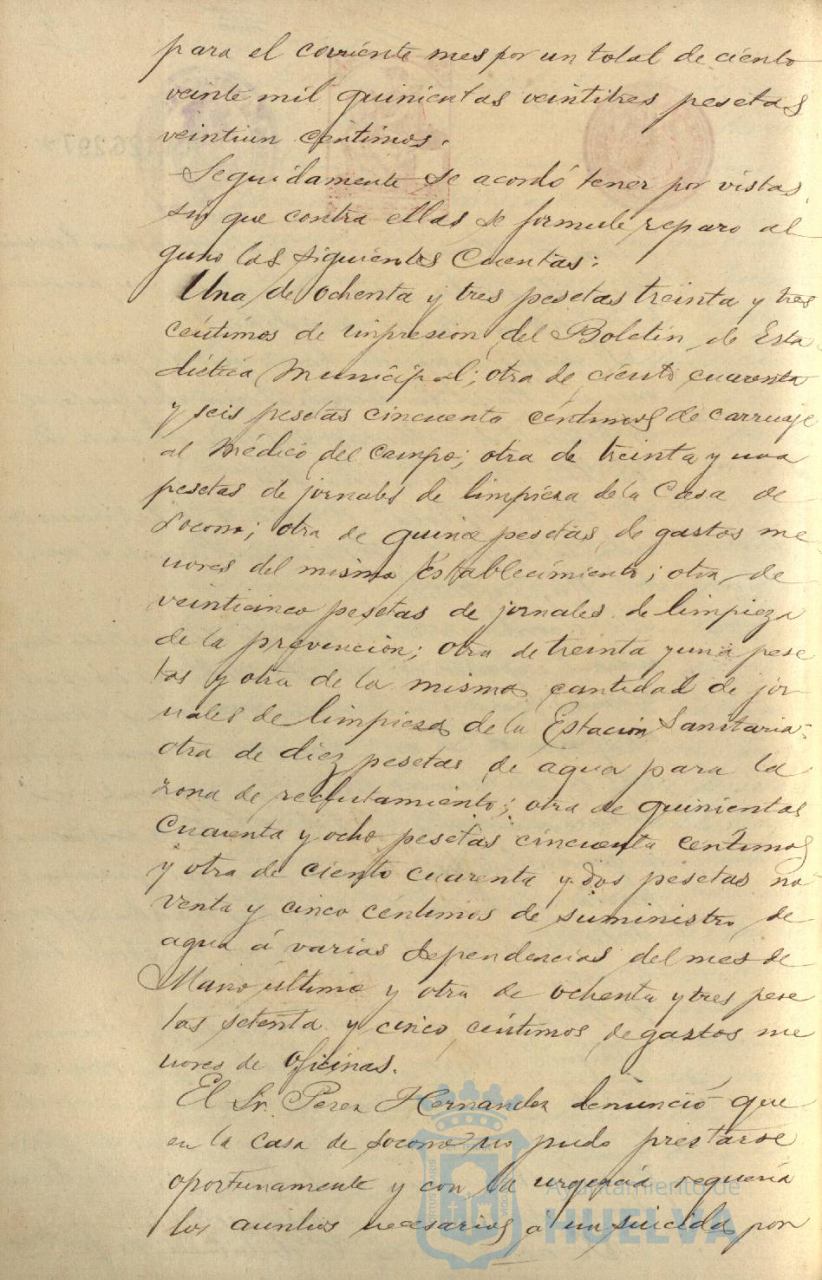 para el corriente mes por un total de ciento
veinte mil quinientas veintitres pesetas
veintiun centimos.
Seguidamente se acordó tener por vistas,
sin que contra ellas se formule reparo al
guno las siguientes Cuentas:
Una de ochenta y tres pesetas treinta y tres
centimos de impresion del Boletin de Esta
distica Municipal; otra de ciento cuarenta
y seis pesetas cincuenta centimos de carruaje
al Médico del Campo; otra de treinta y una
pesetas de jornales de limpieza de la Casa de
Socorro; otra de quince pesetas de gastos me
nores del mismo Establecimiento; otra de
veinticinco pesetas de jornales de limpieza
de la prevencion; otra de treinta y una pese
tas y otra de la misma cantidad de jor
nales de limpieza de la Estacion Sanitaria;
otra de diez pesetas de agua para la
zona de reclutamiento; otra de quinientas
cuarenta y ocho pesetas cincuenta centimos
y otra de ciento cuarenta y dos pesetas no
venta y cinco centimos de suministro de
agua á varias dependencias del mes de
Marzo último y otra de ochenta y tres pese
tas setenta y cinco centimos de gastos me
nores de oficinas.
El Sr. Perez Hernandez denunció que
en la casa de Socorro no pudo prestarse
oportunamente y con la urgencia requeria
los auxilios necesarios a un suicida por
Ayuntamiento de
HUELVA